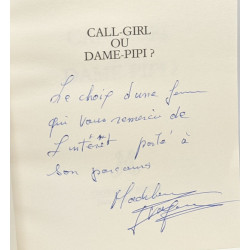 CALL-GIRL
OU
DAME-PIPI ?
Le choix d'une femme
qui vous remercie de
l'intérêt porté à
son parcours